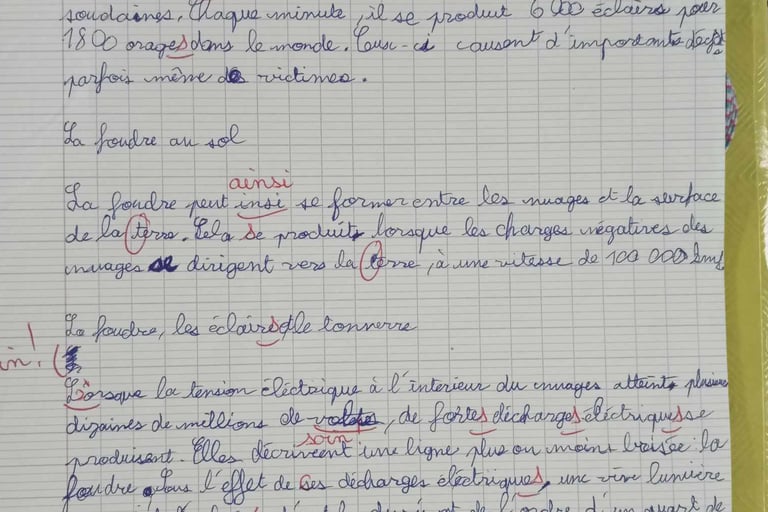 soudaines. Chaque minute, il se produit 6 000 éclairs pour
1800 orages dans le monde. Ceux-ci causent d'importants
parfois même de victimes.
La foudre au sol
ainsi
La foudre peut insi se former entre les nuages et la surface
de la terre. Cela se produit lorsque les charges négatives des
nuages se dirigent vers la terre, à une vitesse de 100 000 km/
La foudre, les éclairs et le tonnerre
in!
Lorsque la tension électrique à l'intérieur du nuages atteint plusieurs
dizaines de millions de, de fortes décharges électriques se
soin
produisent. Elles décrivent une ligne plus ou moins brisée : la
foudre. Sous l'effet de ses décharges électriques, une vive lumière
de l'ordre d'un quart de